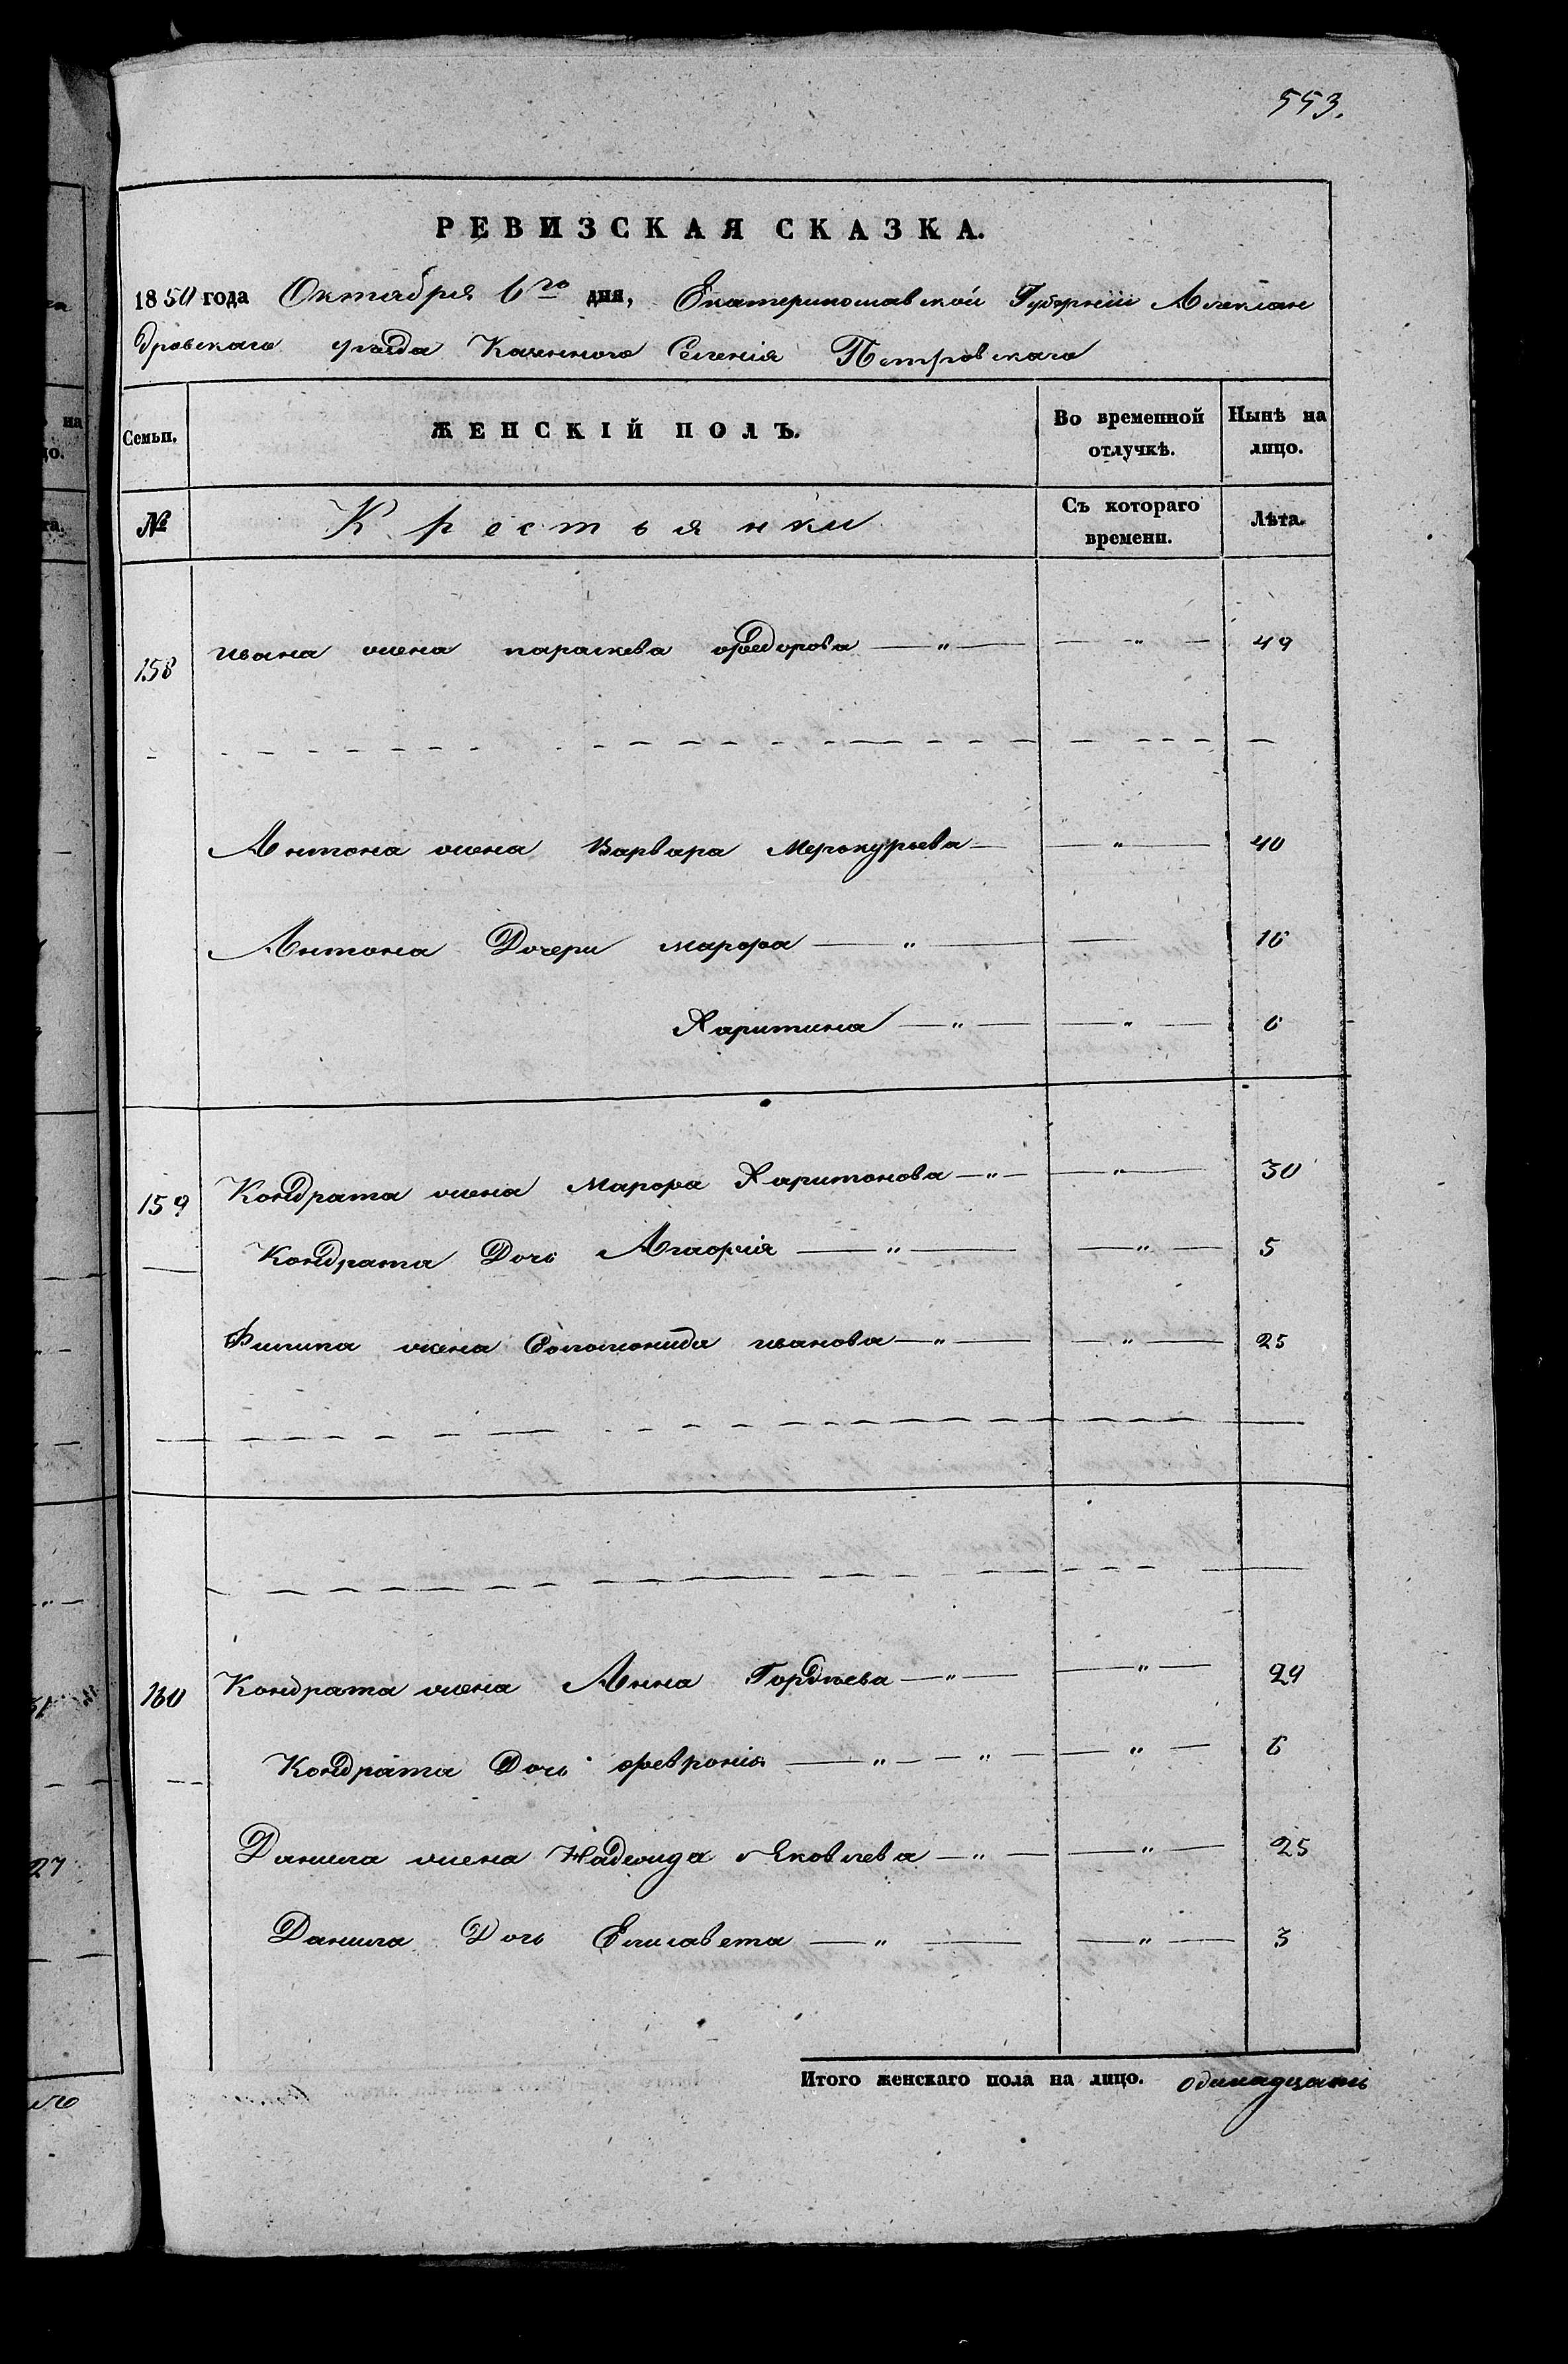 553.
РЕВИЗСКАЯ СКАЗКА.
1850 года Октября 6го дня, Екатеринославской Губернии Алексан
дровскаго уезда Казенного Селенія Петровскаго
Семьи. ЖЕНСКІЙ ПОЛЪ. Во временной отлучкѣ. Нынѣ на лицо.
№ Крестьянки Съ котораго времени. Лѣта.
158 ивана жена параскева федорова — " — — " — 49
Антона жена Варвара Меркурьева — — " — 40
Антона Дочери марфа — " — — 16
Харитина — " — — " — 6
159 Кондрата жена Марфа Харитонова — " — — " — 30
Кондрата Дочь Агафия — " — — " — 5
Филипа жена Соломонида иванова — " — — " — 25
160 Кондрата жена Анна Гордѣева — " — — " — 29
Кондрата Дочь феврония — " — — " — — " — 6
Данила жена Надежда Яковлева — " — — " — 25
Данила Дочь Елисавета — " — — " — 3
Итого женскаго пола на лицо. одинадцать